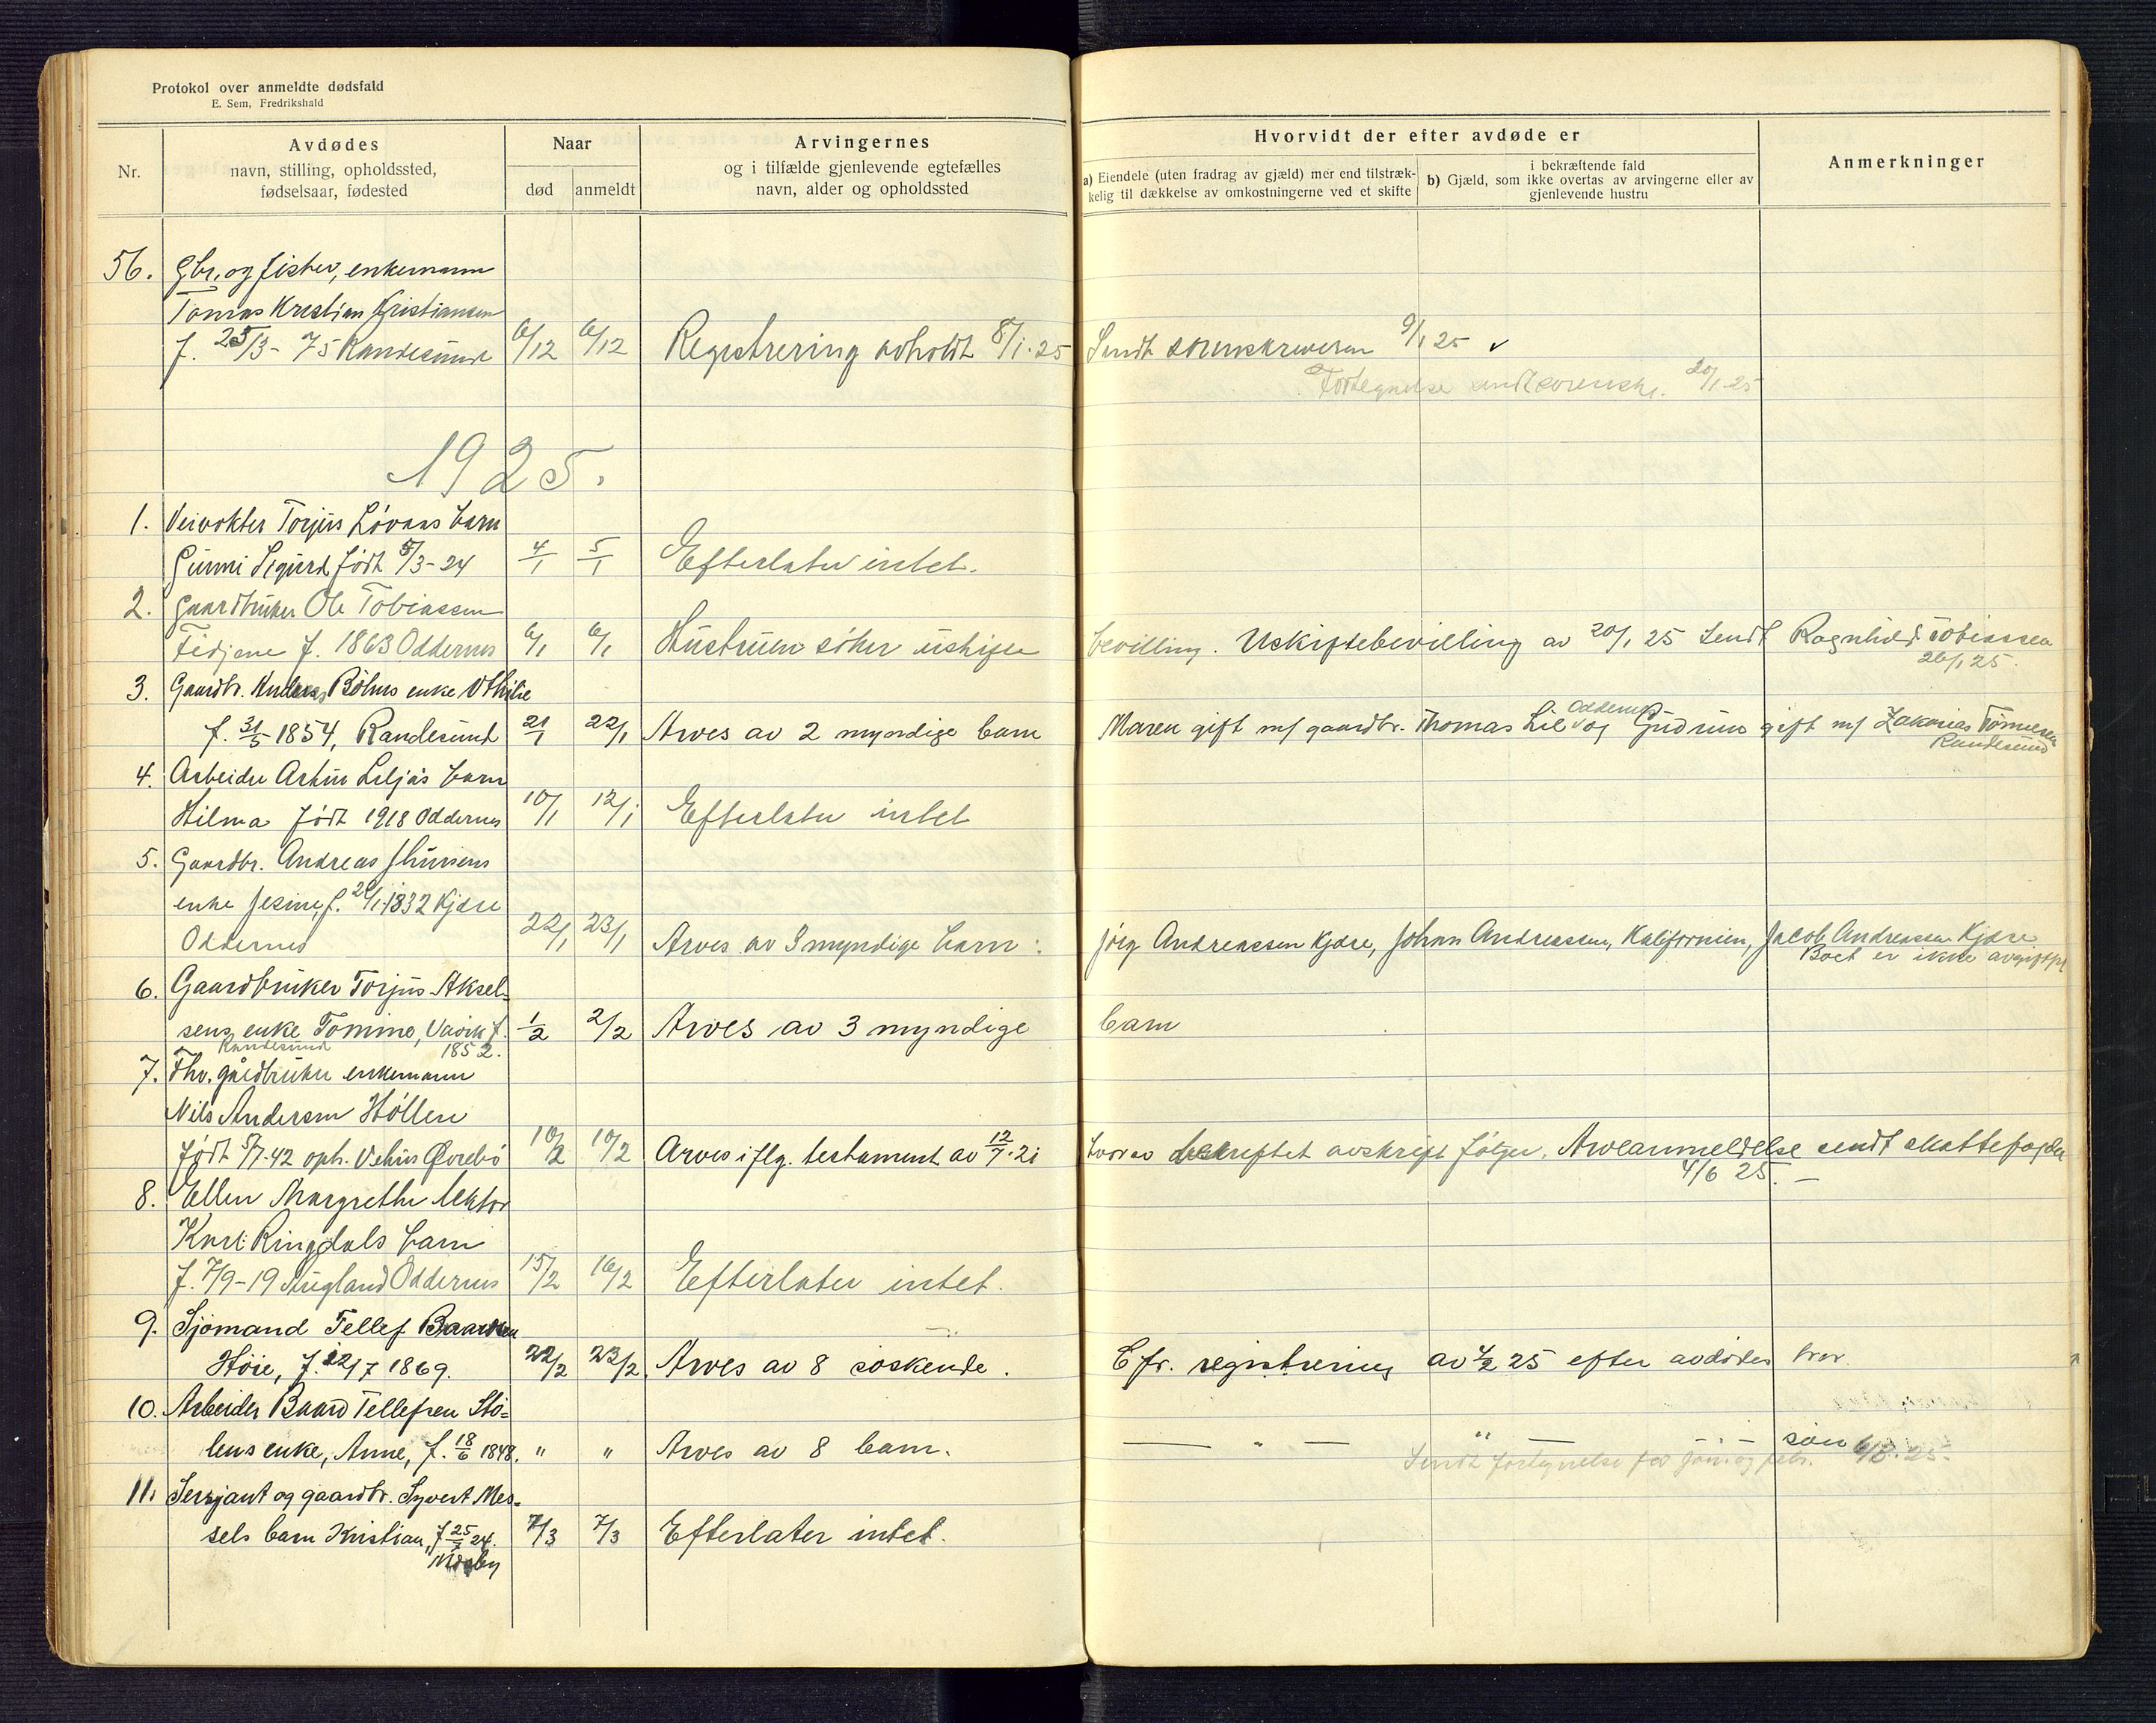 Protokol over anmeldte dødsfald
E. Sem, Fredrikshald
Nr.
Avdødes
navn, stilling, opholdssted,
fødselsaar, fødested
Naar
død anmeldt
Arvingernes
og i tilfælde gjenlevende egtefælles
navn, alder og opholdssted
Hvorvidt der efter avdøde er
a) Eiendele (uten fradrag av gjæld) mer end tilstræk-
kelig til dækkelse av omkostningerne ved et skifte
i bekræftende fald
b) Gjæld, som ikke overtas av arvingerne eller av
gjenlevende hustru
Anmerkninger
56. Gbr. og fisker, enkemann
Tomas Kristian Kristiansen
f. 25/3-75 Randesund 6/12 6/12 Registrering avholdt 8/1-25 Sendt sorenskriveren 9/1 25 ✓
Fortegnelse sendt sorenskr. 20/1-25
1925.
1. Veivokter Torjus Lövaas barn
Gunni Sigurd født 5/3-24 4/1 5/1 Efterlater intet.
2. Gaardbruker Ole Tobiassen
Fidjane f. 1863 Oddernes 6/1 6/1 Hustruen söker uskifte bevilling. Uskiftebevilling av 20/1 25 sendt Ragnhild Tobiassen
26/1 25.
3. Gaardbr. Anders Böhns enke Othilie
f. 31/5 1854, Randesund 21/1 22/1 Arves av 2 myndige barn Maren gift m/ gaardbr. Thomas Lie Oddernes og Gudrun gift m/ Zakarias Tönnesen
Randesund
4. Arbeider Artur Liljäs barn
Hilma født 1918 Oddernes 10/1 12/1 Efterlater intet
5. Gaardbr. Andreas Jhunsens
enke Jesine, f. 20/1-1832 Kjære
Oddernes 22/1 23/1 Arves av 3 myndige barn: Jörg Andreassen Kjære, Johan Andreassen, Kalifornien, Jacob Andreassen Kjære
Boet er ikke avgiftpl
6. Gaardbruker Torjus Aksel-
sens enke Tomine, Vaavik f. 1/2 2/2 Arves av 3 myndige barn
Randesund 1852.
7. Fhv. gårdbruker enkemann
Nils Andersen Höllen
født 5/7-42 oph. Vehus Øvrebö 10/2 10/2 Arves iflg. testament av 12/7-21 hvorav bekreftet avskrift følger. Arveanmeldelse sendt skattefogden
4/6 25. –
8. Ellen Margrethe lektor
Karl Ringdals barn
f. 7/9-19 Augland Oddernes 15/2 16/2 Efterlater intet.
9. Sjömand Tellef Baardsen
Höie, f. 12/7 1869. 22/2 23/2 Arves av 8 söskende. Cfr. registrering av 4/2 25 efter avdödes bror
10. Arbeider Baard Tellefsen Stö-
lens enke, Anne, f. 18/6 1848. " " Arves av 8 barn. — " — " — " — sön
Sendt fortegnelse for 6/3-25-
11. Sersjant og gaardbr. Syvert Mes-
sels barn Kristian, f 25/ 24. 7/3 7/3 Efterlater intet.
Mosby